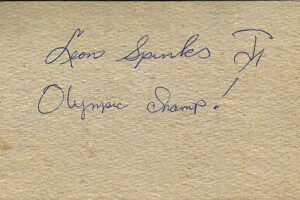 Leon Spinks
Olympic Champ!